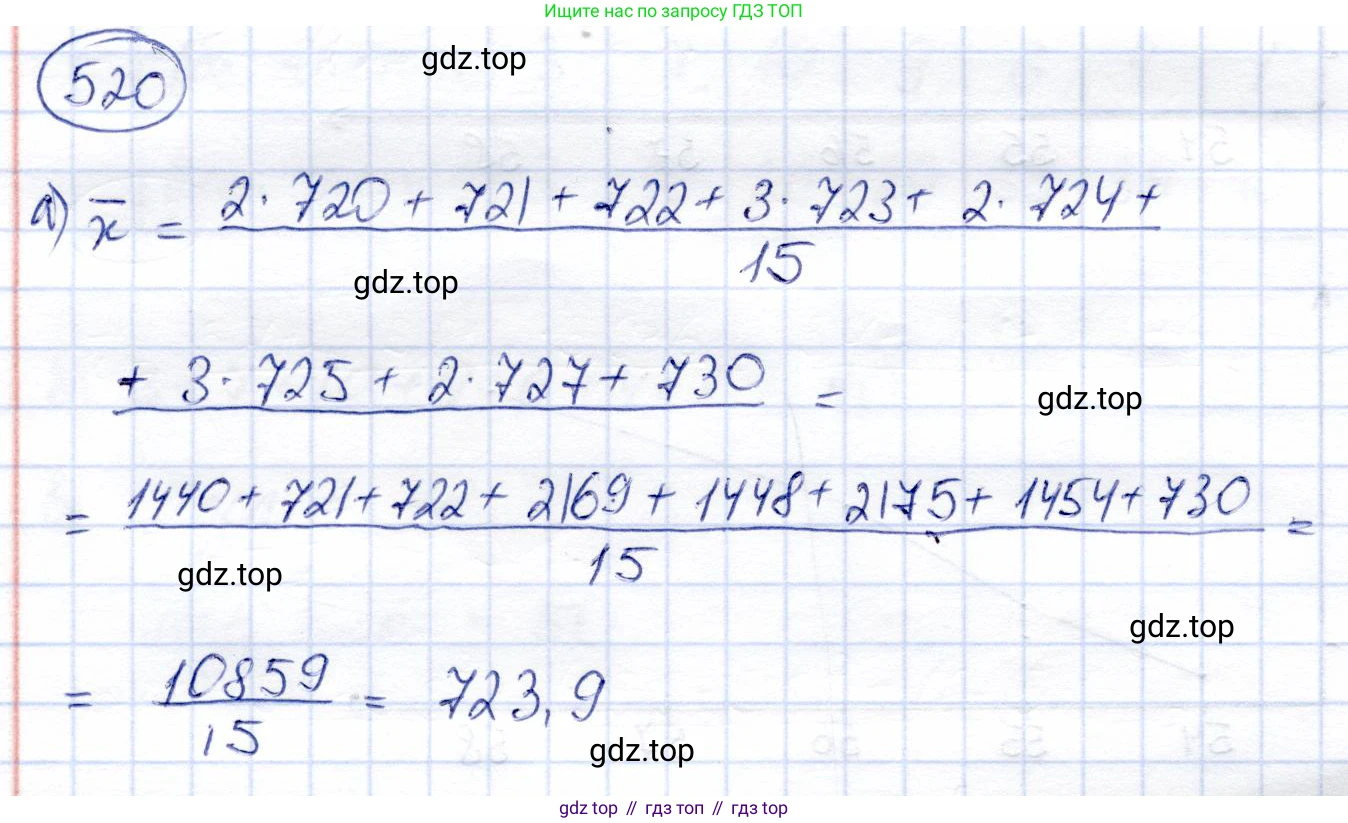 Ищите нас по запросу ГДЗ ТОП
520
gdz.top
а) x̄ = (2·720 + 721 + 722 + 3·723 + 2·724 +) / 15
gdz.top
+ 3·725 + 2·727 + 730 =
gdz.top
= (1440 + 721 + 722 + 2169 + 1448 + 2175 + 1454 + 730) / 15 =
gdz.top
gdz.top
= 10859 / 15 = 723,9
gdz.top
gdz top // гдз топ // гдз top